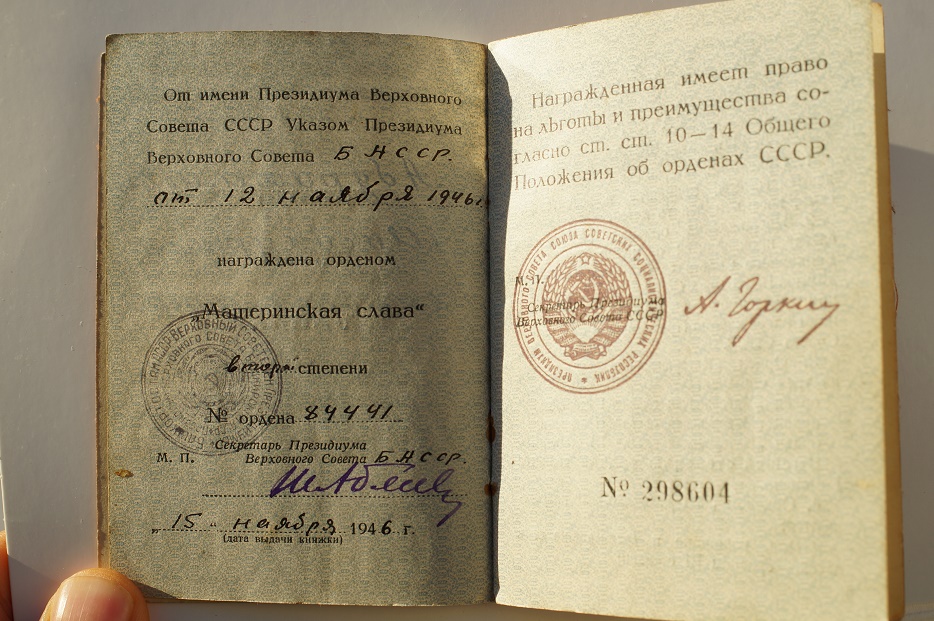 От имени Президиума Верховного
Совета СССР Указом Президиума
Верховного Совета БАССР.
от 12 ноября 1946 г.
награждена орденом
„Материнская слава“
второй степени
№ ордена 84441
Секретарь Президиума
М. П. Верховного Совета БАССР.
„15“ ноября 1946 г.
(дата выдачи книжки)
Награжденная имеет право
на льготы и преимущества со-
гласно ст. ст. 10—14 Общего
Положения об орденах СССР.
ПРЕЗИДИУМ ВЕРХОВНОГО СОВЕТА СОЮЗА СОВЕТСКИХ СОЦИАЛИСТИЧЕСКИХ РЕСПУБЛИК
М. П.
Секретарь Президиума
Верховного Совета СССР
А. Горкин
№ 298604